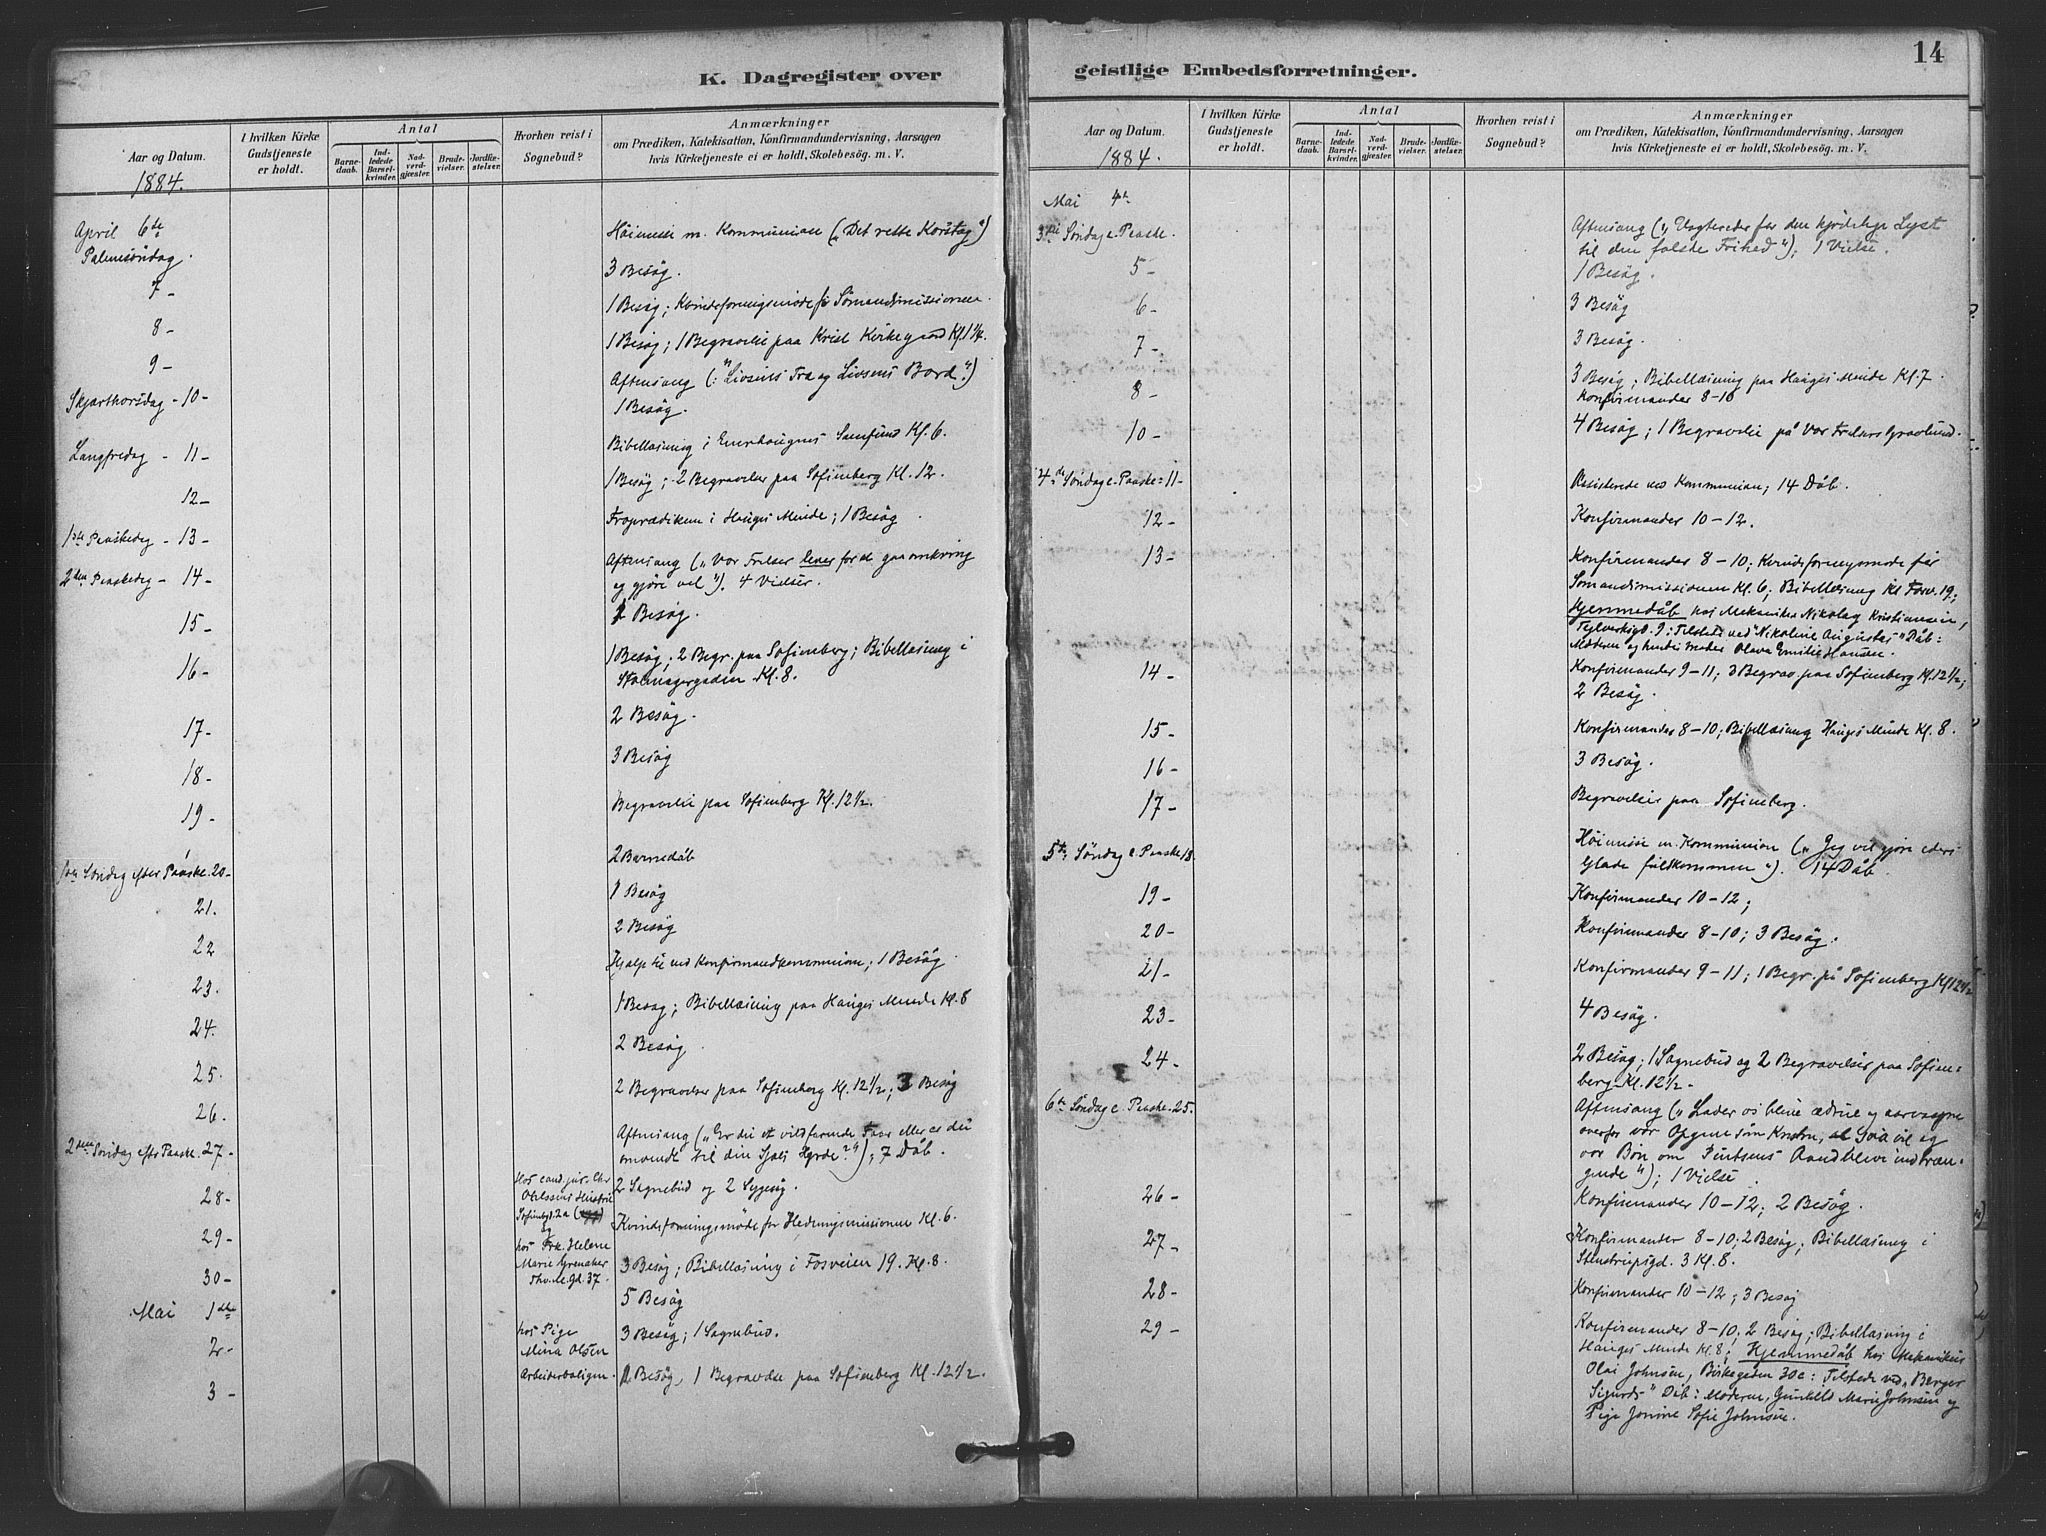 K. Dagregister over
Aar og Datum.
I hvilken Kirke Gudstjeneste er holdt.
Antal
Barnedaab.
Indledede Barselkvinder.
Nadverdgjæster.
Brudevielser.
Jordfæstelser.
Hvorhen reist i Sognebud?
Anmærkninger
om Prædiken, Katekisation, Konfirmandundervisning, Aarsagen
hvis Kirketjeneste ei er holdt, Skolebesög. m. V.
1884.
April 6te Høimesse m. Kommunion („Det rette Korstog“)
Palmesöndag.
3 Besøg.
7 - 1 Besøg; Kvindeforeningsmøde f. Sömandsmissionen.
8 - 1 Besøg; 1 Begravelse paa Krist Kirkegaard Kl. 1½.
9 - Aftensang (: "Livsens Træ og Livsens Bord".)
Skjærthorsdag - 10 - 1 Besøg.
Bibellæsning i Enerhaugens Samfund Kl. 6.
Langfredag - 11 -
1 Besøg; 2 Begravelser paa Sofienberg Kl. 12.
12 -
Froprædiken i Hauges Minde; 1 Besøg
1ste Paaskedag - 13 -
Aftensang („Vor Frelser lever for at gaa omkring
2den Paaskedag - 14 - og gjöre vel“). 4 Vielser.
2 Besøg.
15 -
1 Besøg; 2 Begr. paa Sofienberg; Bibellæsning i
16 - Kl. 8.
2 Besøg.
17 -
3 Besøg
18 -
Begravelse paa Sofienberg Kl. 12½.
19 -
2 Barnedåb
1ste Söndag efter Paaske. 20 -
1 Besøg
21.
2 Besøg
22
Hjalp til ved Konfirmandkommunion; 1 Besøg.
23.
1 Besøg; Bibellæsning paa Hauges Minde Kl. 8
24.
2 Besøg
25.
2 Begravelser paa Sofienberg Kl. 12½; 3 Besøg
26.
Aftensang („Er du et vildfarende Faar eller er du
2den Söndag efter Paaske. 27 - omvendt til din Sjæls Hyrde?“); 7 Dåb.
hos cand. jur. Chr
28 - 2 Sognebud og 2 Sygebesøg.
Sofienbgd. 2a
og
Kvindeforeningsmøde for Hedningmissionen Kl. 6.
29 - hos Frk. Helene
Marie Grenaker
3 Besøg; Bibellæsning i Fosveien 19. Kl. 8.
30 - Thv. M. Gd. 37.
5 Besøg
Mai 1ste
hos Pige 3 Besøg; 1 Sognebud.
2 - Mina Olsen
Arbeiderboligen. 2 Besøg, 1 Begravelse paa Sofienberg Kl. 12½.
3 -
geistlige Embedsforretninger.
14
Aar og Datum.
I hvilken Kirke Gudstjeneste er holdt.
Antal
Barnedaab.
Indledede Barselkvinder.
Nadverdgjæster.
Brudevielser.
Jordfæstelser.
Hvorhen reist i Sognebud?
Anmærkninger
om Prædiken, Katekisation, Konfirmandundervisning, Aarsagen
hvis Kirketjeneste ei er holdt, Skolebesög. m. V.
1884.
Mai 4de
3die Søndag e. Paaske. Aftensang („Vogter eder for den kjødelige Lyst
til den falske Frihed“); 1 Vielse.
5 - 1 Besøg.
6 - 3 Besøg
7 - 3 Besøg.
8 - 3 Besøg; Bibellæsning paa Hauges Minde Kl. 7.
Konfirmander 8-10
10 - 4 Besøg; 1 Begravelse på Vor Frelsers Gravlund.
4de Søndag e. Paaske - 11 - Assisterede ved Kommunion; 14 Dåb.
12 - Konfirmander 10-12.
13 - Konfirmander 8-10; Kvindeforeningsmøde for
Sömandsmissionen Kl. 6; Bibellæsning Kl. Fosv. 19;
Hjemmedåb hos Mekaniker Nikolay Kristiansen,
Teglverksgd. 9; Tilstede ved "Nikoline Augustas" Dåb:
Moderen og hendes Moder Olava Emilie Hansen.
14 - Konfirmander 9-11; 3 Begrav. paa Sofienberg Kl. 12½;
2 Besøg.
15 - Konfirmander 8-10; Bibellæsning Hauges Minde Kl. 8.
16 - 3 Besøg.
17 - Begravelser paa Sofienberg.
5te Søndag e. Paaske 18. Høimesse m. Kommunion („Jeg vil gjøre eders
Glæde fuldkommen“). 14 Dåb.
19 - Konfirmander 10-12;
20 - Konfirmander 8-10; 3 Besøg.
21 - Konfirmander 9-11; 1 Begr. på Sofienberg Kl 12½
23 - 4 Besøg.
24 - 2 Besøg; 1 Sognebud og 2 Begravelser paa Sofien-
berg Kl. 12½.
6te Søndag e. Paaske. 25. Aftensang („Lader os blive ædrue og aarvaagne
overfor vor Opgave som Kristne, at og
vor Bøn om Pintsens Aand blive indtræn-
gende“); 1 Vielse.
26 - Konfirmander 10-12; 2 Besøg.
27 - Konfirmander 8-10; 2 Besøg; Bibellæsning i
Stenstrupsgd. 3 Kl. 8.
28 - Konfirmander 10-12; 3 Besøg
29 - Konfirmander 8-10; 2 Besøg; Bibellæsning i
Hauges Minde Kl. 8; Hjemmedåb hos Mekanikus
Olai Johnsen, Birkegaden 30c: Tilstede ved „Berger
Sigurds“ Dåb: Moderen, Gunhild Marie Johnsen og
Pige Jonine Sofie Johnsen.